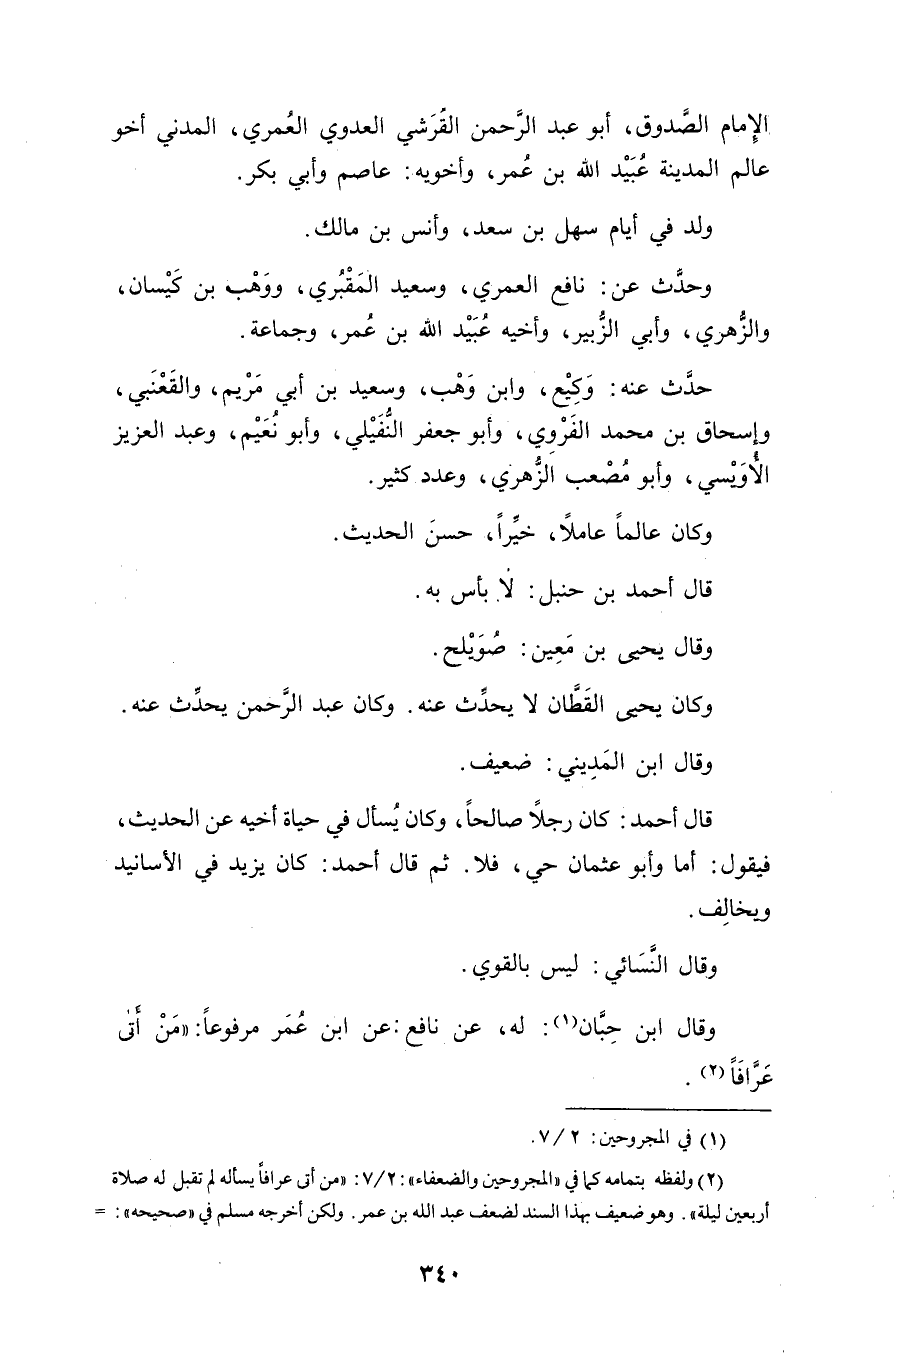 الإِمام الصَّدوق، أبو عبد الرَّحمن القُرَشي العدوي العُمري، المدني أخو
عالم المدينة عُبَيْد الله بن عُمر، وأخويه: عاصم وأبي بكر.
ولد في أيام سهل بن سعد، وأنس بن مالك.
وحدَّث عن: نافع العمري، وسعيد المَقْبُري، ووَهْب بن كَيْسان،
والزُّهري، وأبي الزُّبير، وأخيه عُبَيْد الله بن عُمر، وجماعة.
حدَّث عنه: وَكِيْع، وابن وَهْب، وسعيد بن أبي مَرْيم، والقَعْنَبي،
وإسحاق بن محمد الفَرْوِي، وأبو جعفر النُّفَيْلي، وأبو نُعَيْم، وعبد العزيز
الأُوَيْسي، وأبو مُصْعب الزُّهري، وعدد كثير.
وكان عالماً عاملاً، خيِّراً، حسنَ الحديث.
قال أحمد بن حنبل: لا بأس به.
وقال يحيى بن مَعِين: صُوَيْلح.
وكان يحيى القَطَّان لا يحدِّث عنه. وكان عبد الرَّحمن يحدِّث عنه.
وقال ابن المَدِيني: ضعيف.
قال أحمد: كان رجلاً صالحاً، وكان يُسأل في حياة أخيه عن الحديث،
فيقول: أما وأبو عثمان حي، فلا. ثم قال أحمد: كان يزيد في الأسانيد
ويخالِف.
وقال النَّسَائي: ليس بالقوي.
وقال ابن حِبَّان(١): له، عن نافع:عن ابن عُمَر مرفوعاً: «مَنْ أَتَى
عَرَّافَاً(٢).
(١) في المجروحين: ٢ / ٧.
(٢) ولفظه بتمامه كما في «المجروحين والضعفاء»: ٢/ ٧: «من أتى عرافاً يسأله لم تقبل له صلاة
أربعين ليلة». وهو ضعيف بهذا السند لضعف عبد الله بن عمر. ولكن أخرجه مسلم في «صحيحه»: =
٣٤٠